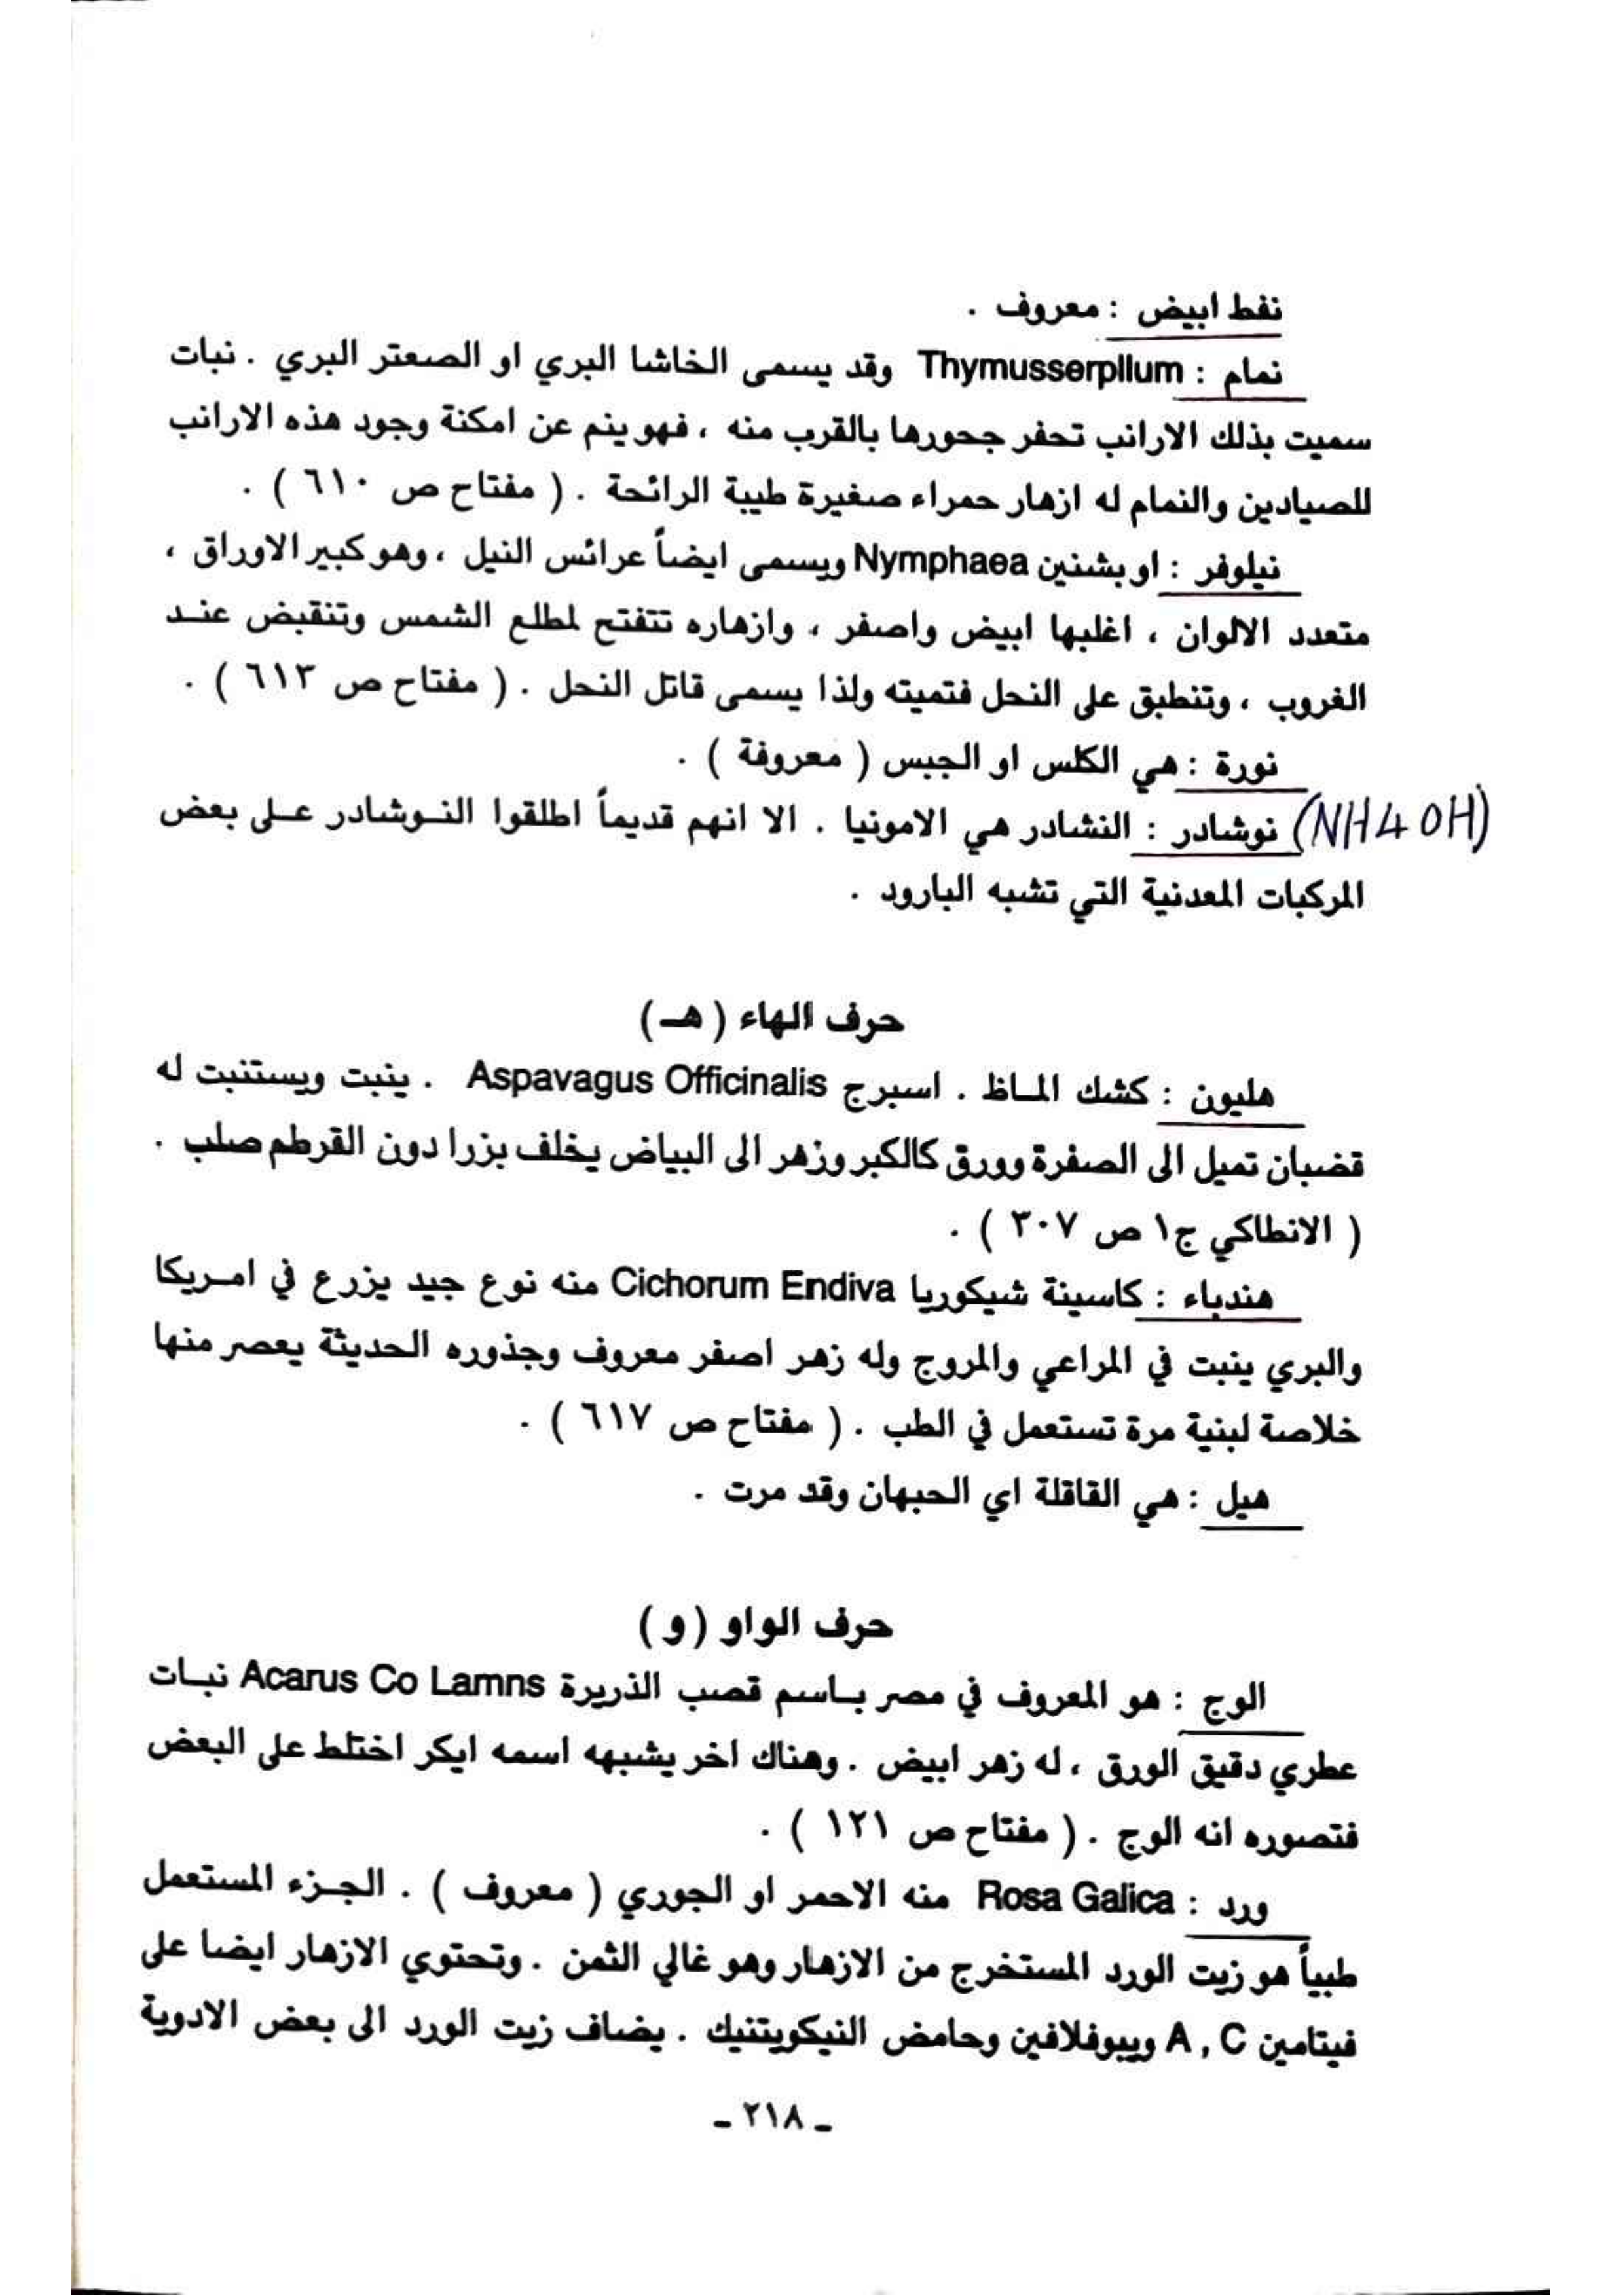 نفط ابيض : معروف .
نمام : Thymusserpllum وقد يسمى الخاشا البري او الصعتر البري . نبات
سميت بذلك الارانب تحفر جحورها بالقرب منه ، فهو ينم عن امكنة وجود هذه الارانب
للصيادين والنمام له ازهار حمراء صغيرة طيبة الرائحة . ( مفتاح ص ٦١٠ ) .
نيلوفر : او بشنين Nymphaea ويسمى ايضاً عرائس النيل ، وهو كبير الاوراق ،
متعدد الالوان ، اغلبها ابيض واصفر ، وازهاره تتفتح لمطلع الشمس وتنقبض عنـد
الغروب ، وتنطبق على النحل فتميته ولذا يسمى قاتل النحل . ( مفتاح ص ٦١٣ ) .
نورة : هي الكلس او الجبس ( معروفة ) .
(NH4OH) نوشادر : النشادر هي الامونيا . الا انهم قديماً اطلقوا النـوشادر عـلى بعض
المركبات المعدنية التي تشبه البارود .
حرف الهاء ( هـ )
هليون : كشك المـاظ . اسبرج Aspavagus Officinalis . ينبت ويستنبت له
قضبان تميل الى الصفرة وورق كالكبر وزهر الى البياض يخلف بزرا دون القرطم صلب .
( الانطاكي ج١ ص ٣٠٧ ) .
هندباء : كاسينة شيكوريا Cichorum Endiva منه نوع جيد يزرع في امـريكا
والبري ينبت في المراعي والمروج وله زهر اصفر معروف وجذوره الحديثة يعصر منها
خلاصة لبنية مرة تستعمل في الطب . ( مفتاح ص ٦١٧ ) .
هيل : هي القاقلة اي الحبهان وقد مرت .
حرف الواو ( و )
الوج : هو المعروف في مصر بـاسم قصب الذريرة Acarus Co Lamns نبـات
عطري دقيق الورق ، له زهر ابيض . وهناك اخر يشبهه اسمه ايكر اختلط على البعض
فتصوره انه الوج . ( مفتاح ص ١٢١ ) .
ورد : Rosa Galica منه الاحمر او الجوري ( معروف ) . الجـزء المستعمل
طبياً هو زيت الورد المستخرج من الازهار وهو غالي الثمن . وتحتوي الازهار ايضا على
فيتامين A , C ويبوفلافين وحامض النيكويتنيك . يضاف زيت الورد الى بعض الادوية
ـ ٢١٨ ـ